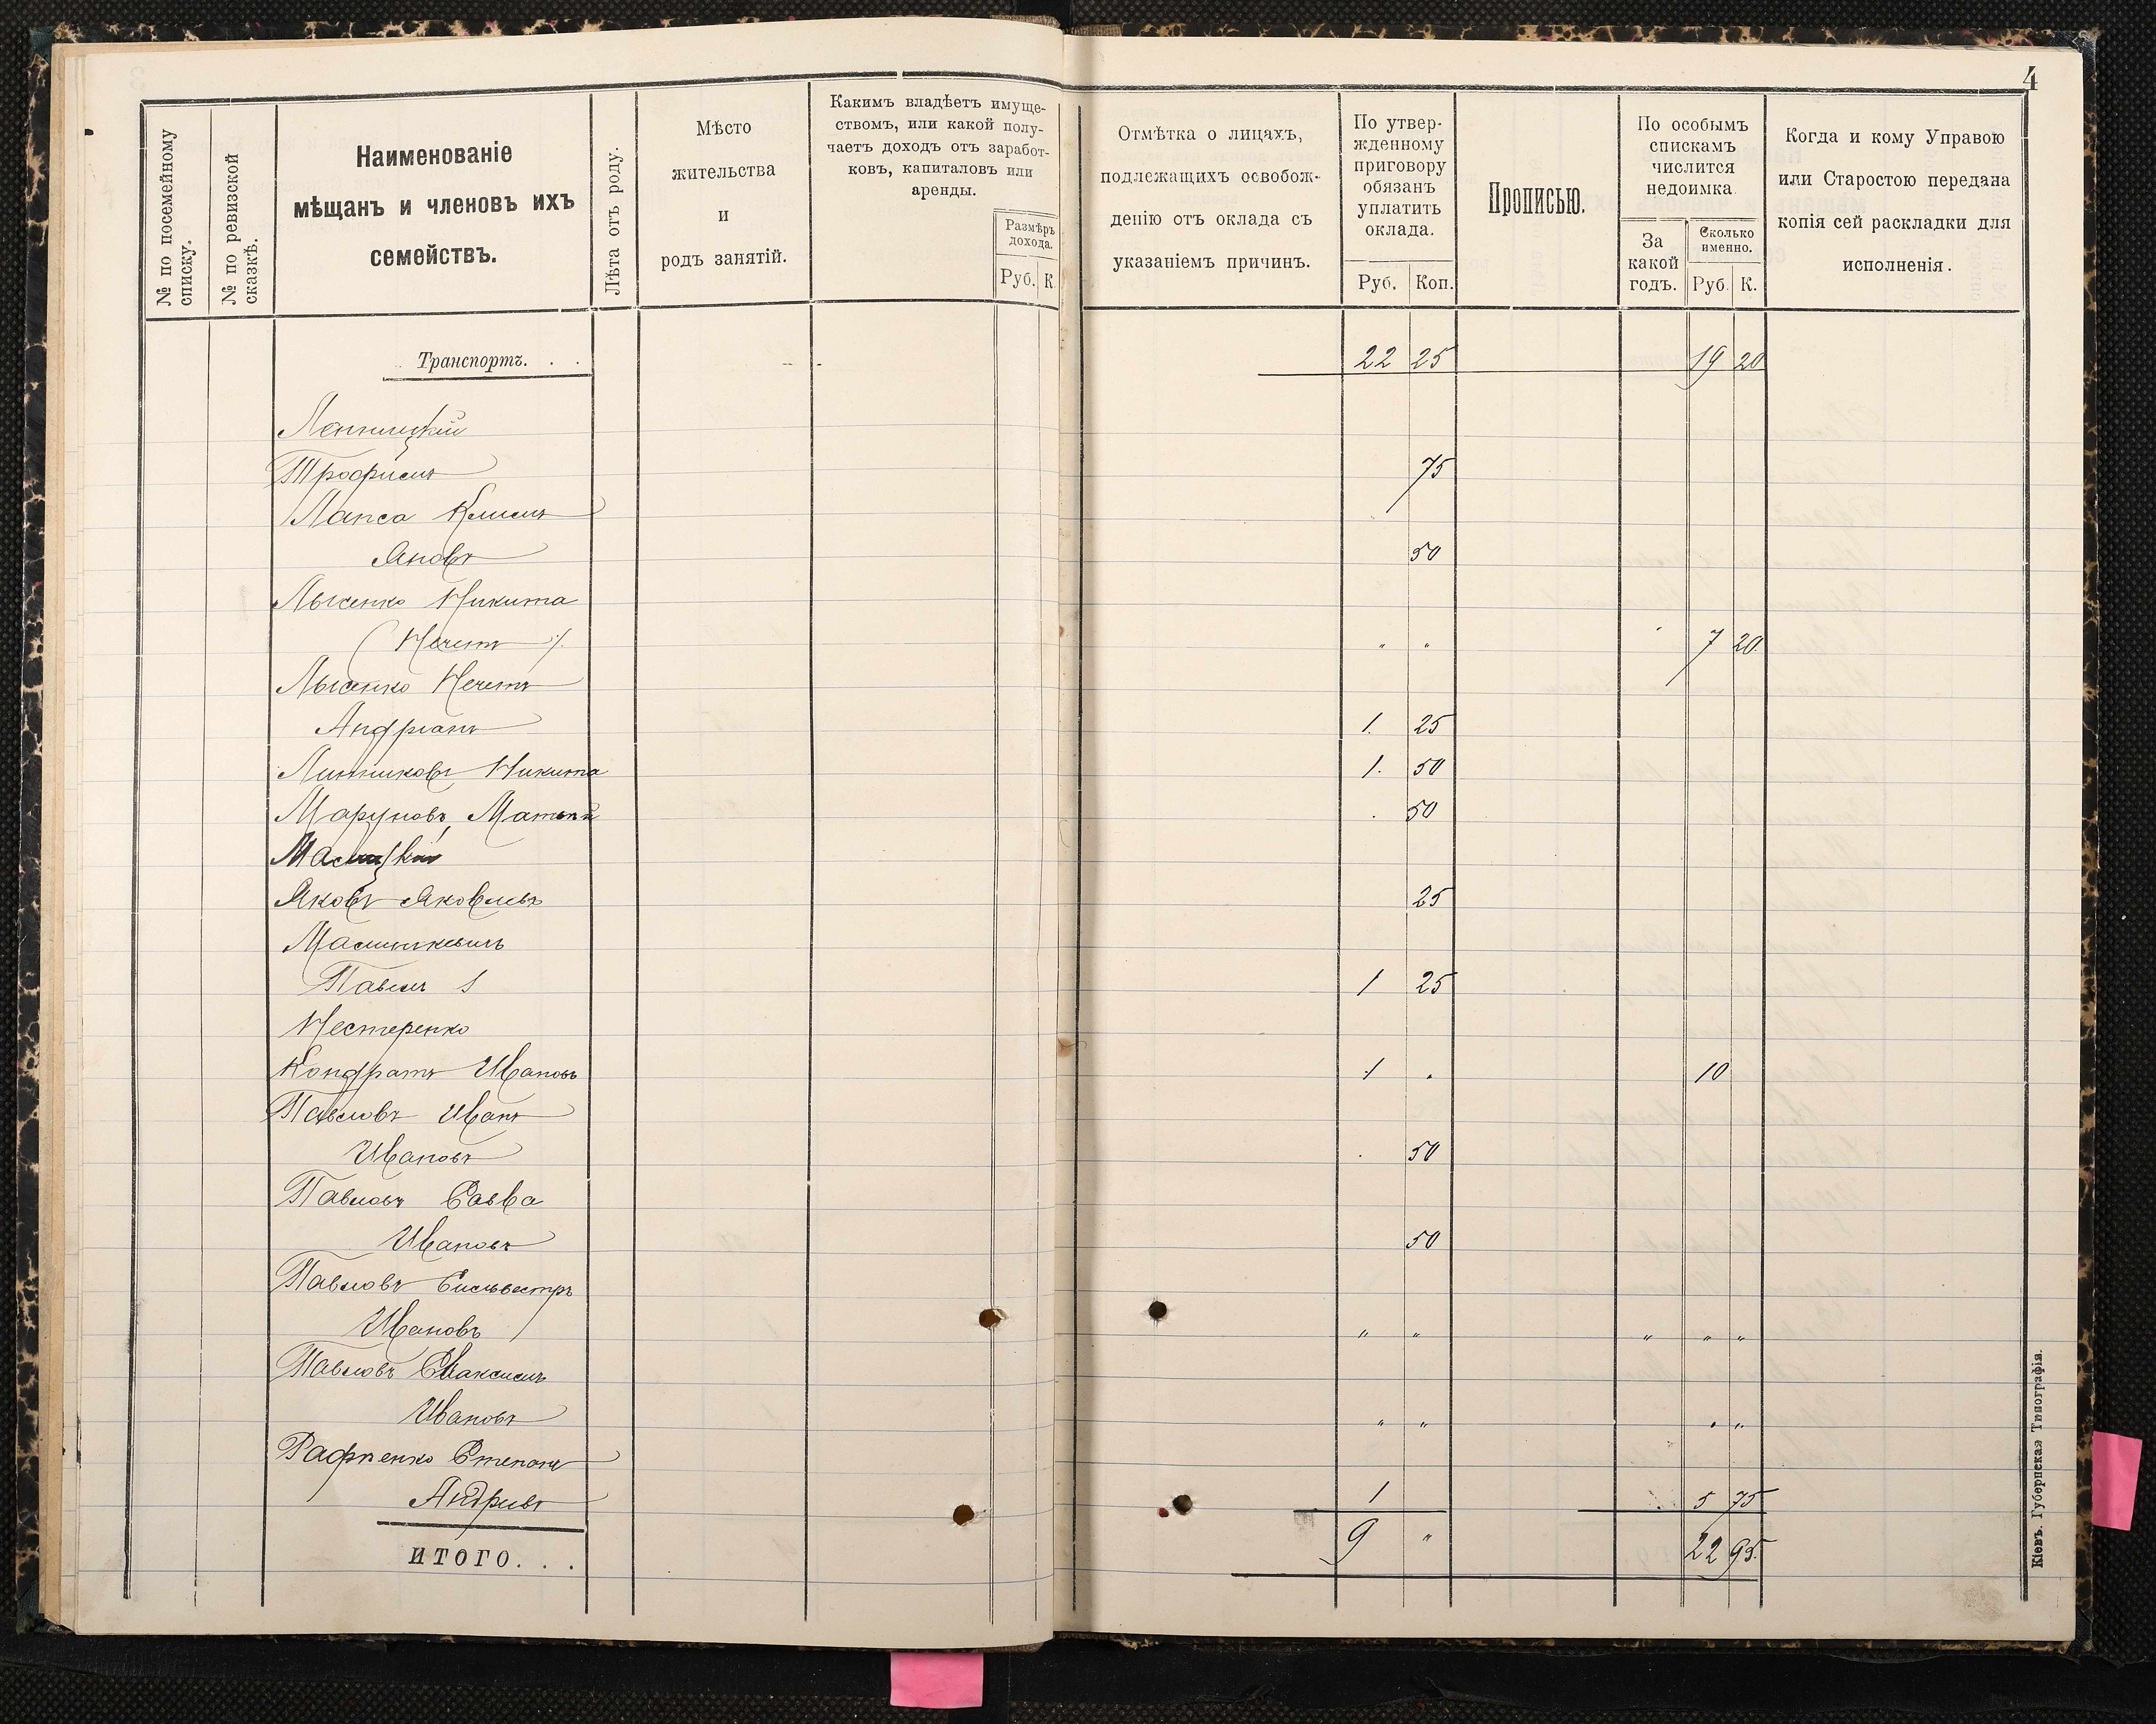 4
№ по посемейному списку.
№ по ревизской сказкѣ.
Наименованіе
мѣщанъ и членовъ ихъ
семействъ.
Лѣта отъ роду.
Мѣсто
жительства
и
родъ занятій.
Какимъ владѣетъ имуще-
ствомъ, или какой полу-
чаетъ доходъ отъ заработ-
ковъ, капиталовъ или
аренды.
Размѣръ
дохода.
Руб. К.
Отмѣтка о лицахъ,
подлежащихъ освобож-
денію отъ оклада съ
указаніемъ причинъ.
По утвер-
жденному
приговору
обязанъ
уплатить
оклада.
Руб. Коп.
Прописью.
По особымъ
спискамъ
числится
недоимка
За
какой
годъ.
Сколько
именно.
Руб. К.
Когда и кому Управою
или Старостою передана
копія сей раскладки для
исполненія.
Транспортъ. . . 22 25 19 20
Трофимъ 75
Лапса Климъ
Яковъ 50
Лысенко Никита
" " 7 20
Лысенко
Андріанъ 1. 25
Линниковъ Никита 1. 50
Маруновъ Матвѣй 50
Яковъ Яковлевъ 25
Павелъ 1 25
Нестеренко
Кондратъ Ивановъ 1 . 10
Павловъ Иванъ
Ивановъ . 50
Павловъ Савва
Ивановъ 50
Павловъ Сильвестръ
Ивановъ " " " " "
Павловъ Максимъ
Ивановъ " " " "
Степанъ
Андріевъ 1 5 75
ИТОГО. . . 9 " 22 95.
Кіевъ. Губернская Типографія.